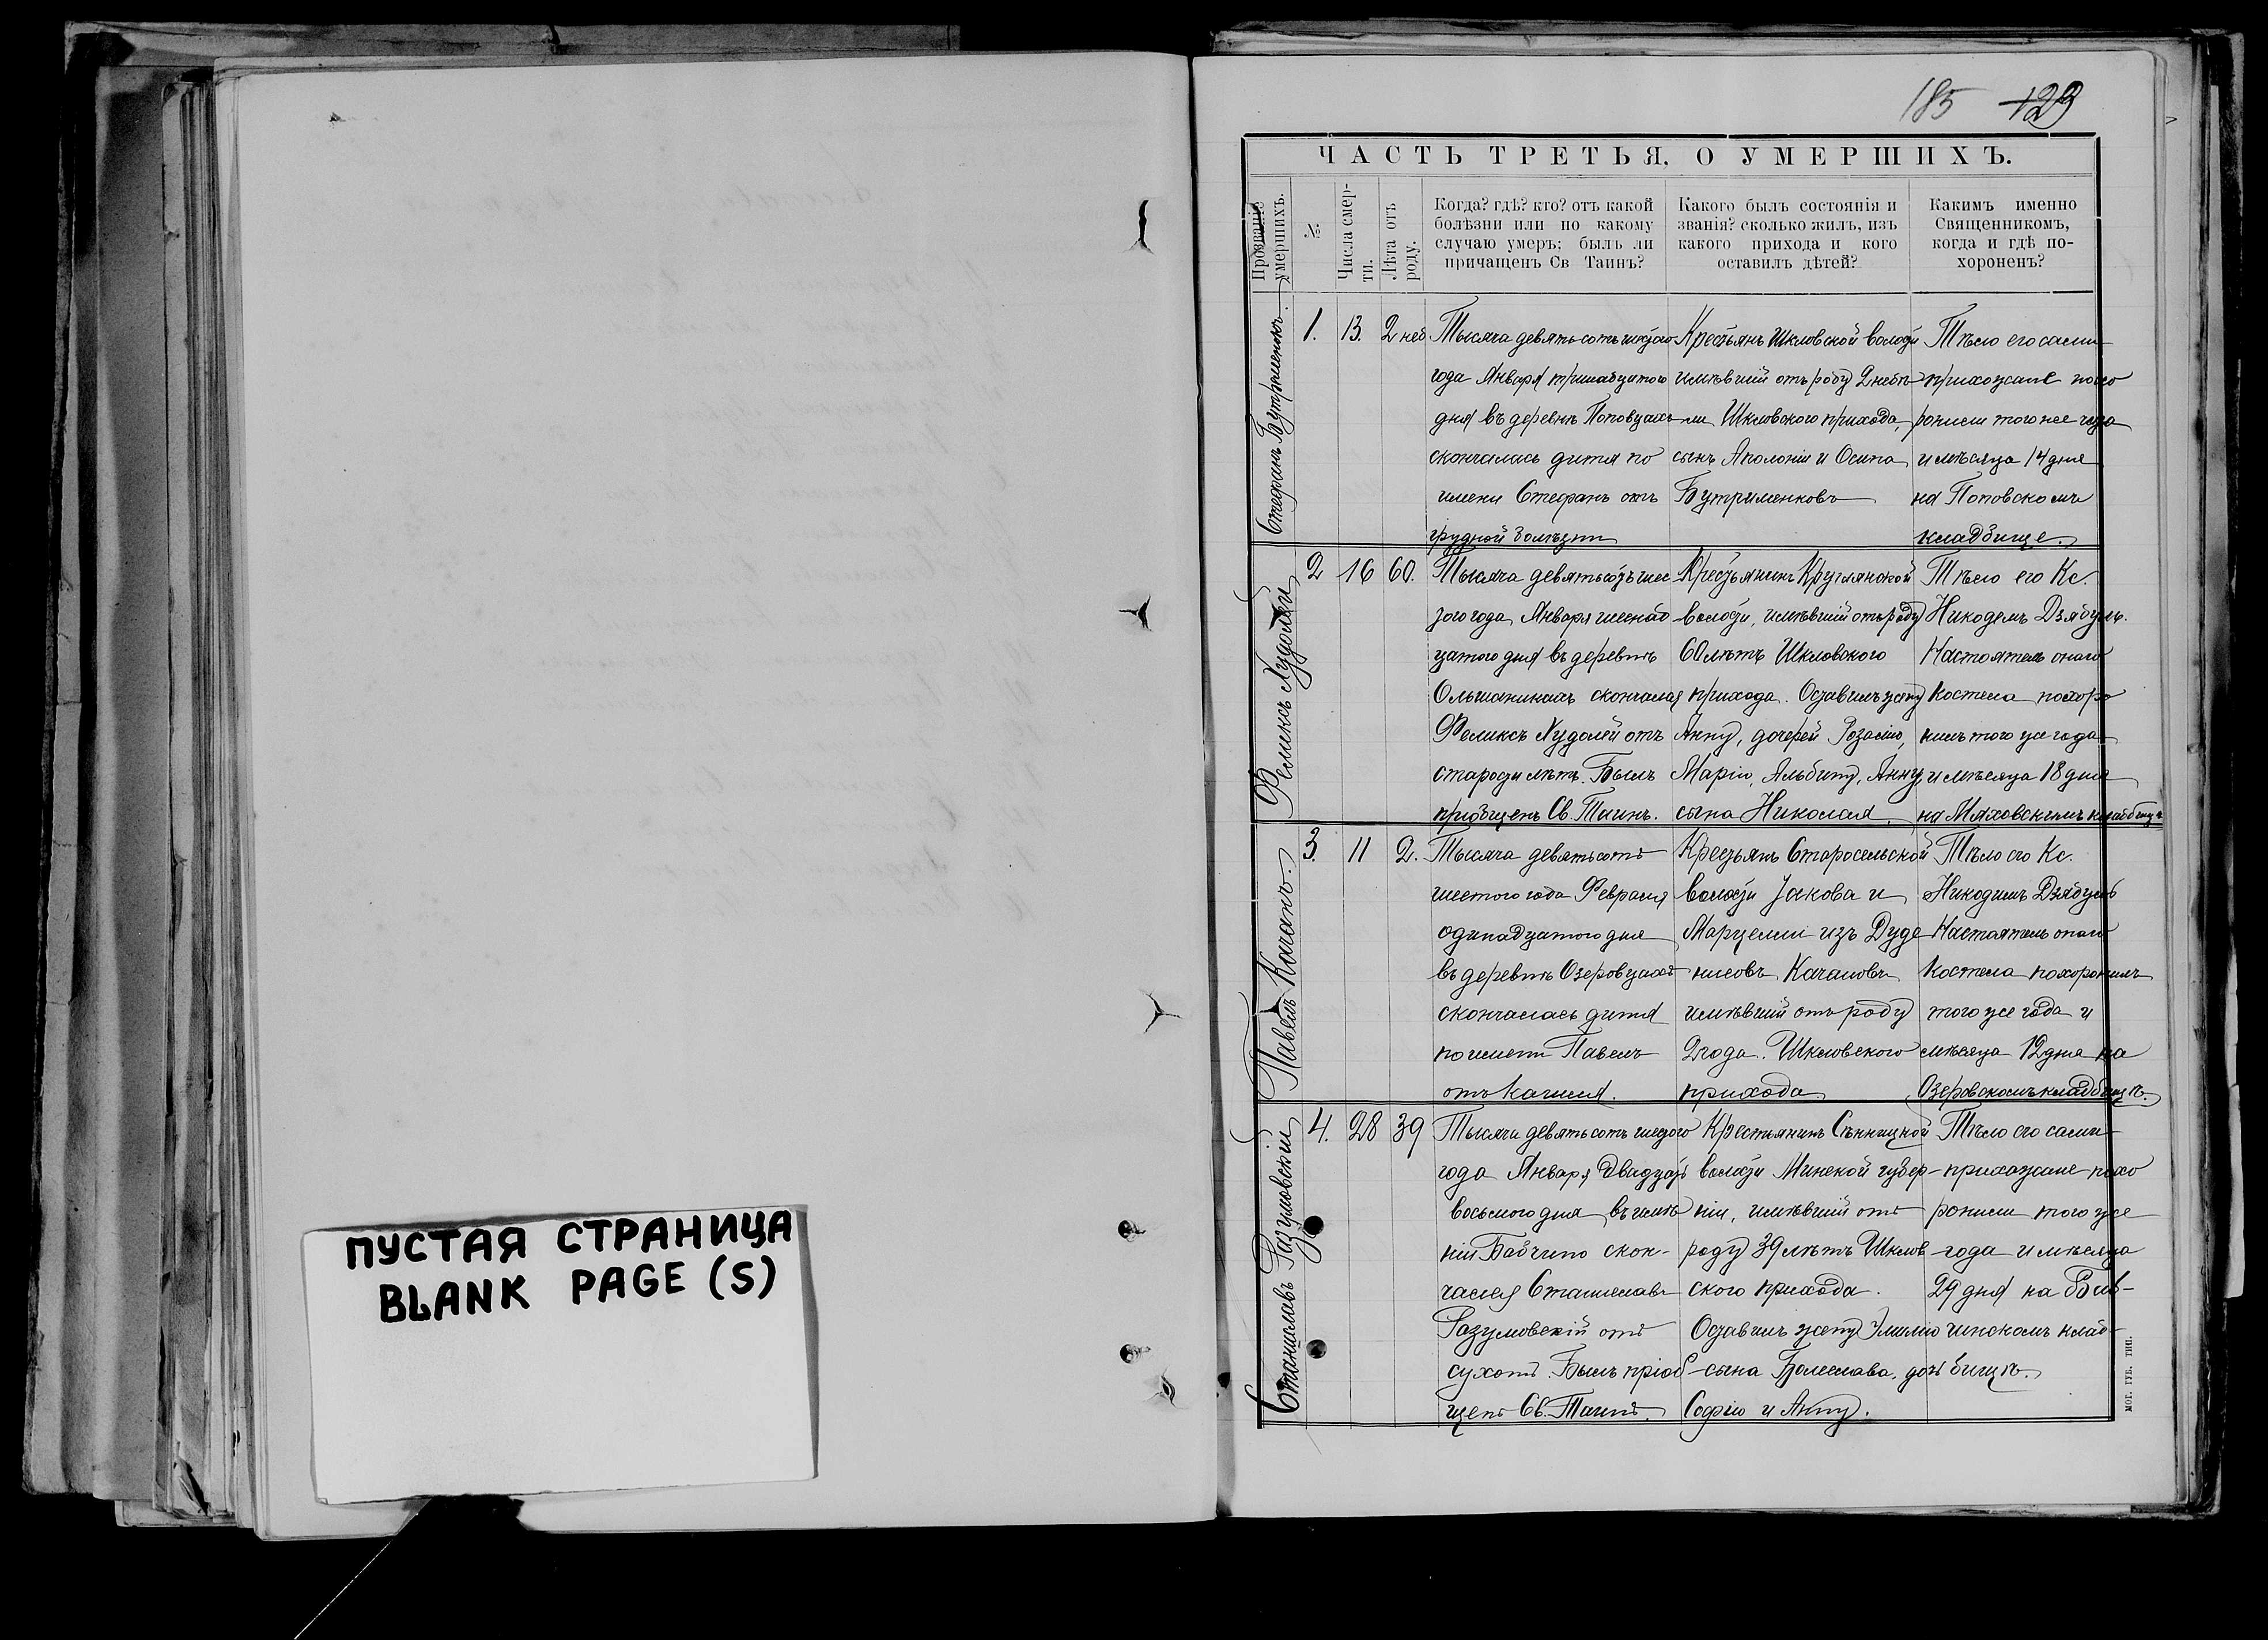 ПУСТАЯ СТРАНИЦА
BLANK PAGE (S)
185 129
ЧАСТЬ ТРЕТЬЯ, О УМЕРШИХЪ.
Прозваніе умершихъ.
№
Числа смер-
ти.
Лѣта отъ
роду.
Когда? гдѣ? кто? отъ какой
болѣзни или по какому
случаю умеръ; былъ ли
причащенъ Св Таинъ?
Какого былъ состоянія и
званія? сколько жилъ, изъ
какого прихода и кого
оставилъ дѣтей?
Какимъ именно
Священникомъ,
когда и гдѣ по-
хороненъ?
Стефанъ Бутрименокъ.
1.
13.
2 нед
Тысяча девятьсотъ шестого
года Января тринадцатого
дня въ деревнѣ Поповцахъ
скончалась дитя по
имени Стефанъ отъ
грудной болѣзни
Крестьянъ Шкловской волости
имѣвшій отъ роду 2 недѣ
ли Шкловского прихода,
сынъ Аполоніи и Осипа
Бутрименковъ
Тѣло его сами
прихожане похо
ронили того же года
и мѣсяца 14 дня
на Поповскомъ
кладбище.
Феликсъ Худолей
2
16
60.
Тысяча девятьсотъ шес
того года Января шеснад
цатого дня въ деревнѣ
Ольшаникахъ скончался
Феликсъ Худолей отъ
старости лѣтъ. Былъ
пріобщенъ Св. Таинъ.
Крестьянинъ Круглянской
волости, имѣвший отъ роду
60 лѣтъ Шкловского
прихода. Оставилъ жену
Анну, дочерей Розалію,
Марію, Альбину, Анну,
сына Николая.
Тѣло его Кс.
Никодемъ Дзябуль.
Настоятель оного
костела похоро
нилъ того же года
и мѣсяца 18 дня
на Мяховскимъ кладбищѣ
Павелъ Качанъ.
3.
11
2.
Тысяча девятьсотъ
шестого года Февраля
одинадцатого дня
въ деревнѣ Озеровцахъ
скончалась дитя
по имени Павелъ
отъ кашля.
Крестьянъ Старосельской
волости Јакова и
Марцелли изъ Дуде
нисовъ Качановъ
имѣвшій отъ роду
2 года. Шкловского
прихода.
Тѣло его Кс.
Никодимъ Дзябуль
Настоятель оного
костела похоронилъ
того же года и
мѣсяца 12 дня на
Озеровскомъ кладбищѣ.
Станиславъ Разумовскій
4.
28
39
Тысячи девятьсотъ шестого
года Января двадцать
восьмого дня въ имѣ
ніи Бабчино скон-
чался Станиславъ
Разумовскій отъ
сухотъ. Былъ пріоб
щенъ Св. Таинъ.
Крестьянинъ Сѣнницкой
волости Минской губер-
ніи, имѣвшій отъ
роду 39 лѣтъ Шклов
ского прихода.
Оставилъ жену Эмилію
сына Болеслава, доч
Софію и Анну.
Тѣло его сами
прихожане похо
ронили того же
года и мѣсяца
29 дня на Баб-
чинскомъ клад-
бищѣ.
МОГ. ГУБ. ТИП.